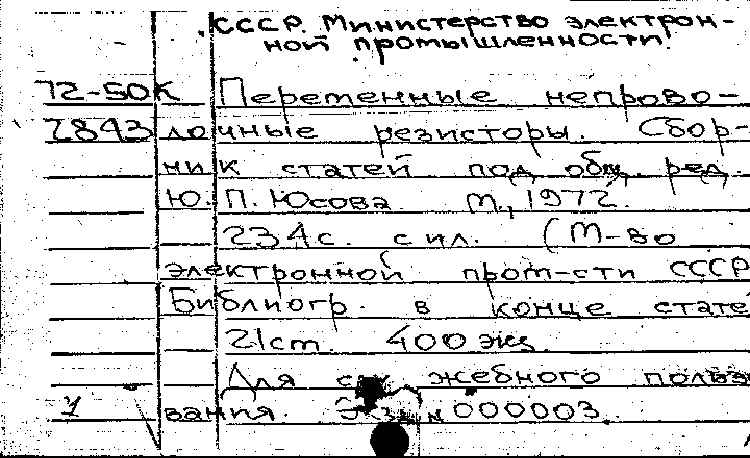 СССР. Министерство электрон-
ной промышленности.
72-50К Переменные непрово-
2843 лочные резисторы. Сбор-
ник статей под общ. ред.
Ю. П. Юсова М., 1972.
234с. с ил. (М-во
электронной пром-сти СССР
Библиогр. в конце стате
21cm. 400 экз
Для служебного пользо
1 вания. Экз. № 000003.